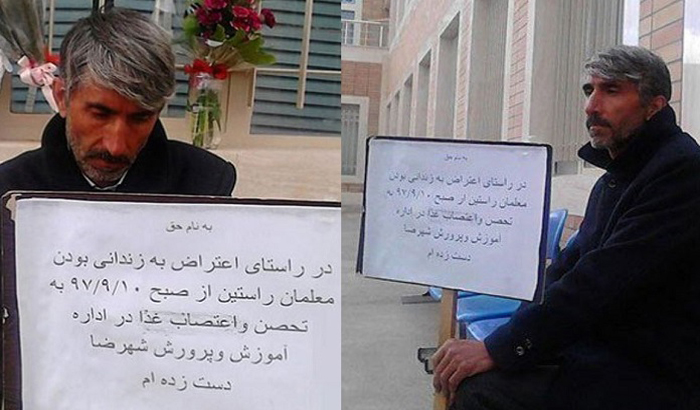 به نام حق
در راستای اعتراض به زندانی بودن
معلمان راستین از صبح ۹۷/۹/۱۰ به
تحصن واعتصاب غذا در اداره
آموزش وپرورش شهرضا
دست زده ام
به نام حق
در راستای اعتراض به زندانی بودن
معلمان راستین از صبح ۹۷/۹/۱۰ به
تحصن واعتصاب غذا در اداره
آموزش وپرورش شهرضا
دست زده ام